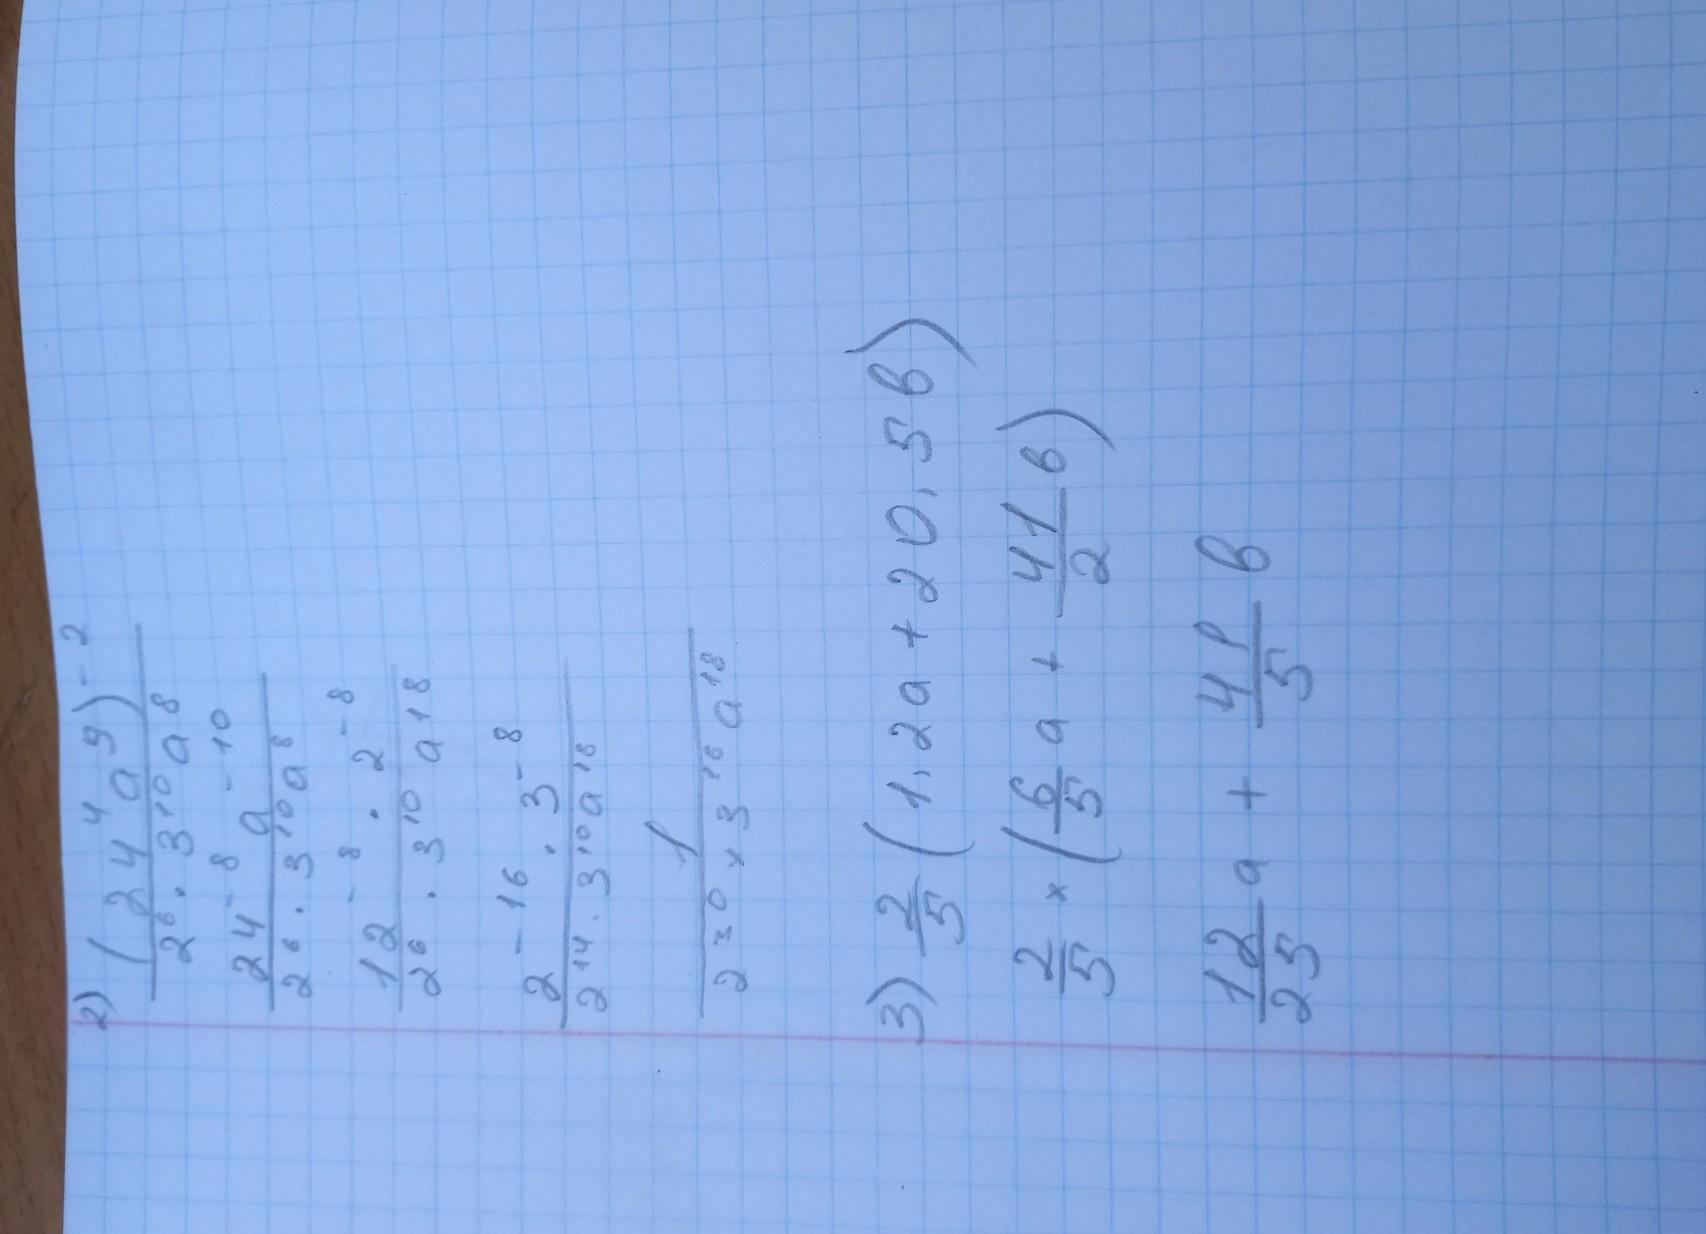 2) (24⁴a⁵)⁻²
2⁶ · 3¹⁰a⁸
24⁻⁸ a⁻¹⁰
2⁶ · 3¹⁰a⁸
12⁻⁸ · 2⁻⁸
2⁶ · 3¹⁰ a¹⁸
2⁻¹⁶ · 3⁻⁸
2¹⁴ · 3¹⁰a¹⁸
1
2³⁰ × 3¹⁸ a¹⁸
3) 2/5 (1,2a + 20,5в)
2/5 × (6/5 a + 41/2 в)
12/25 a + 41/5 в